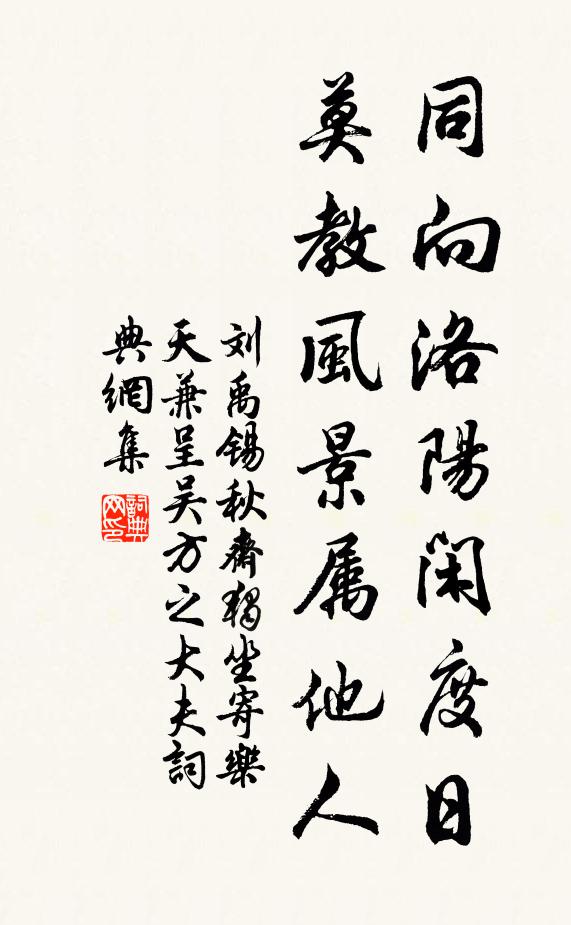 同向洛陽閑度日
莫教風景属他人
刘禹锡秋齋獨坐寄樂
天兼呈吴方之大夫詞
典網集
詞典
网印